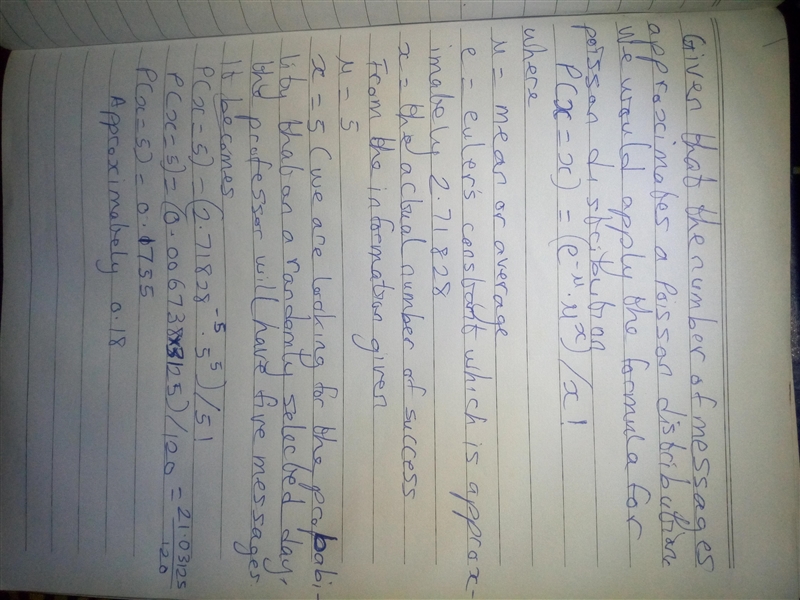 Given that the number of messages
approximates a poisson distribution
We would apply the formula for
poisson distribution
P(x = x) = (e^-μ . μ^x) / x!
where
μ = mean or average
e = euler's constant which is approx-
imately 2.71828
x = the actual number of success
From the information given
μ = 5
x = 5 (we are looking for the probabi-
lity that on a randomly selected day,
the professor will have five messages
It becomes
P(x = 5) = (2.71828^-5 . 5^5) / 5!
P(x = 5) = (0.006738 x 3125) / 120 = 21.03125/120
P(x = 5) = 0.1735
Approximately 0.18